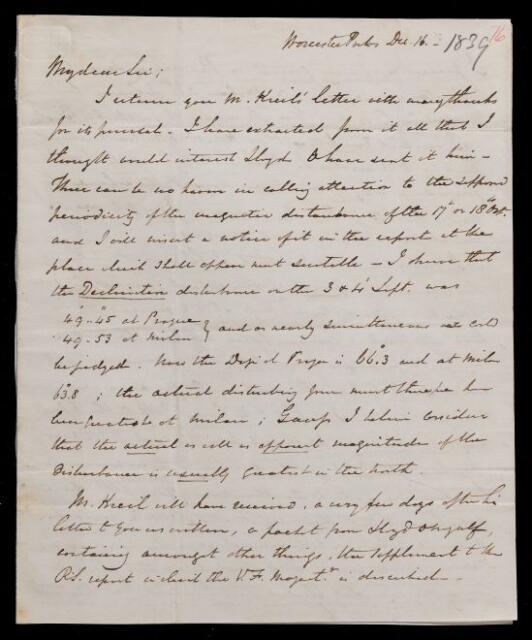 Worcester Park Dec. 16. - 1839 16
My dear Sir;
I return you M. Kreil's letter with many thanks
for its perusal. I have extracted from it all that I
thought would interest Lloyd & have sent it him -
There can be no harm in calling attention to the supposed
periodicity of the magnetic disturbance of the 17th or 18th Oct.
and I will insert a notice of it in the report at the
place which shall appear most suitable - I observe that
the Declination disturbance on the 3 & 4 Sept. was
49.45 at Prague
49.53 at Milan } and as nearly simultaneous as could
be judged. Now the Dip at Prague is 66°.3 and at Milan
63°.8 ; the actual disturbing force must therefore have
been greatest at Milan ; Gauss I believe considers
that the actual as well as apparent magnitude of the
Disturbance is usually greatest in the North.
M. Kreil will have received, a very few days after his
letter to you was written, a packet from Lloyd & myself,
containing amongst other things, the supplement to the
R.S. report in which the V.F. Magnetr. is described -